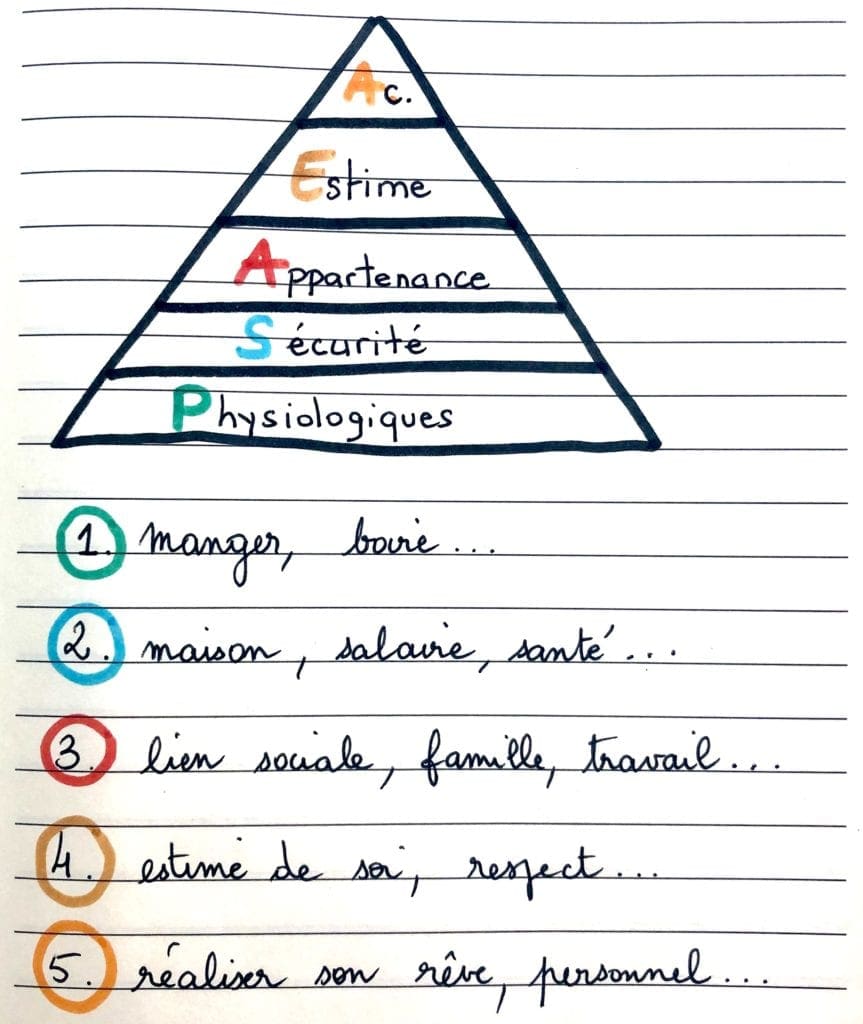 Ac.
Estime
Appartenance
Sécurité
Physiologiques
1. manger, boire...
2. maison, salaire, santé...
3. lien sociale, famille, travail...
4. estime de soi, respect...
5. réaliser son rêve, personnel...